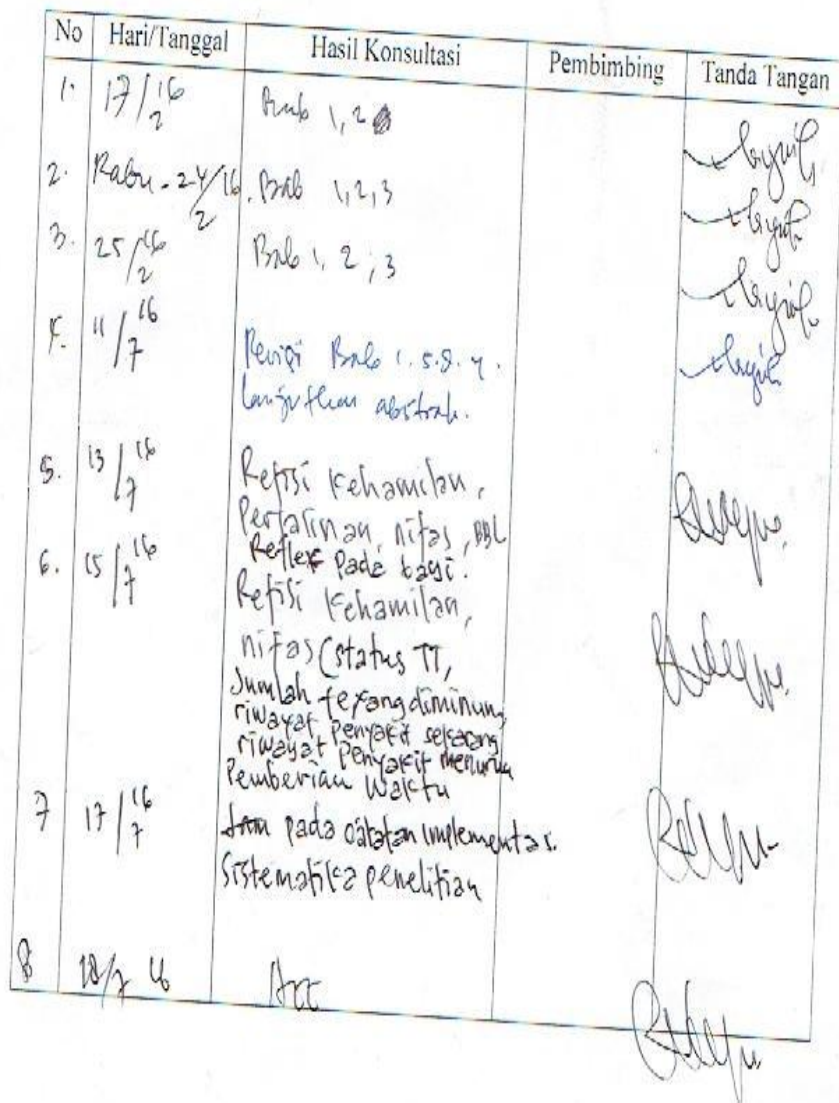 No Hari/Tanggal Hasil Konsultasi Pembimbing Tanda Tangan
1. 17/2 16 Bab 1, 2
2. Rabu - 24/2 16. Bab 1,2,3
3. 25/2 16 Bab 1, 2, 3
4. 11/7 16
Revisi Bab 1. s.d. 4.
lanjutkan abstrak.
5. 13/7 16 Refisi Kehamilan,
Persalinan, nifas, BBL
Reflex pada bayi.
6. 15/7 16 Refisi Kehamilan,
nifas (status TT,
Jumlah fe yang diminum,
riwayat penyakit sekarang
riwayat penyakit menurun
Pemberian waktu
7 17/7 16 jam pada catatan implementasi.
Sistematika penelitian
8 18/7 16 Acc